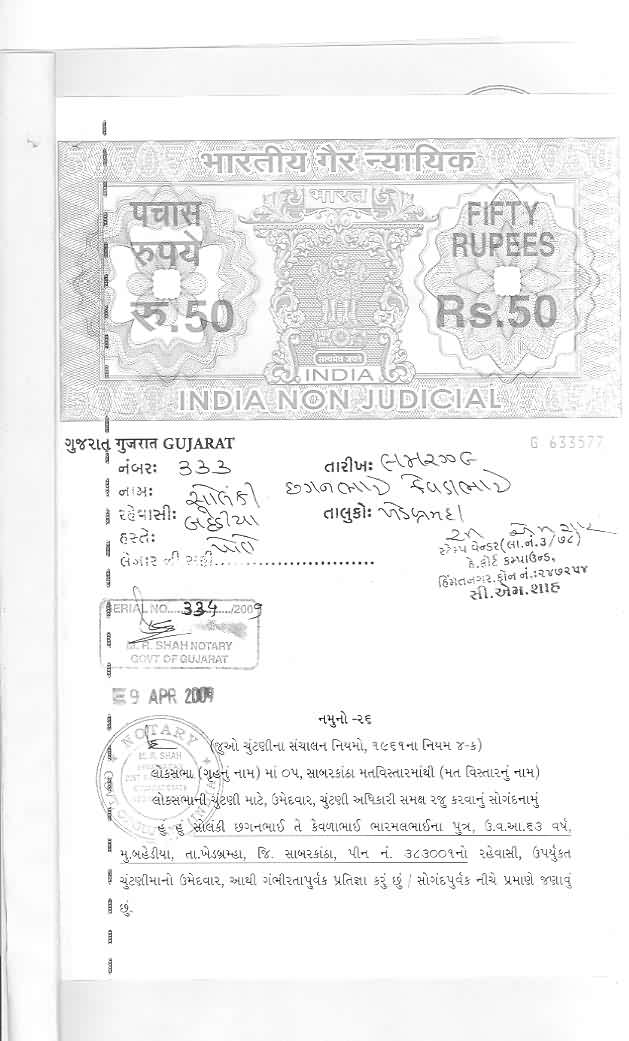 भारतीय गैर न्यायिक
भारत
पचास
रुपये
रु.50
FIFTY
RUPEES
Rs.50
सत्यमेव जयते
INDIA
INDIA NON JUDICIAL
ગુજરાત गुजरात GUJARAT
G 633577
નંબર: 333
તારીખ:
નામ: સોલંકી છગનભાઈ કેવળાભાઈ
રહેવાસી: બહેડીયા
તાલુકો: ખેડબ્રહ્મા
હસ્તે: પોતે
લેનાર ની સહી
સ્ટેમ્પ વેન્ડર(લા.નં.૩/૭૮)
હે.કોર્ટ કમ્પાઉન્ડ,
હિંમતનગર.ફોન નં.:૨૪૭૨૫૪
સી.એમ.શાહ
SERIAL NO.... 334 /2009
M. R. SHAH NOTARY
GOVT OF GUJARAT
9 APR 2009
NOTARY
M. R. SHAH
નમુનો -૨૬
(જુઓ ચુંટણીના સંચાલન નિયમો, ૧૯૬૧ના નિયમ ૪-ક)
લોકસભા (ગૃહનું નામ) માં ૦૫, સાબરકાંઠા મતવિસ્તારમાંથી (મત વિસ્તારનું નામ)
લોકસભાની ચુંટણી માટે, ઉમેદવાર, ચુંટણી અધિકારી સમક્ષ રજુ કરવાનું સોગંદનામું
હું હું સોલંકી છગનભાઈ તે કેવળાભાઈ ભારમલભાઈના પુત્ર, ઉ.વ.આ.૬૩ વર્ષ,
મુ.બહેડીયા, તા.ખેડબ્રમ્હા, જિ. સાબરકાંઠા, પીન નં. ૩૮૩૦૦૧નો રહેવાસી, ઉપર્યુકત
ચુંટણીમાનો ઉમેદવાર, આથી ગંભીરતાપુર્વક પ્રતિજ્ઞા કરું છું / સોગંદપુર્વક નીચે પ્રમાણે જણાવું
છું.